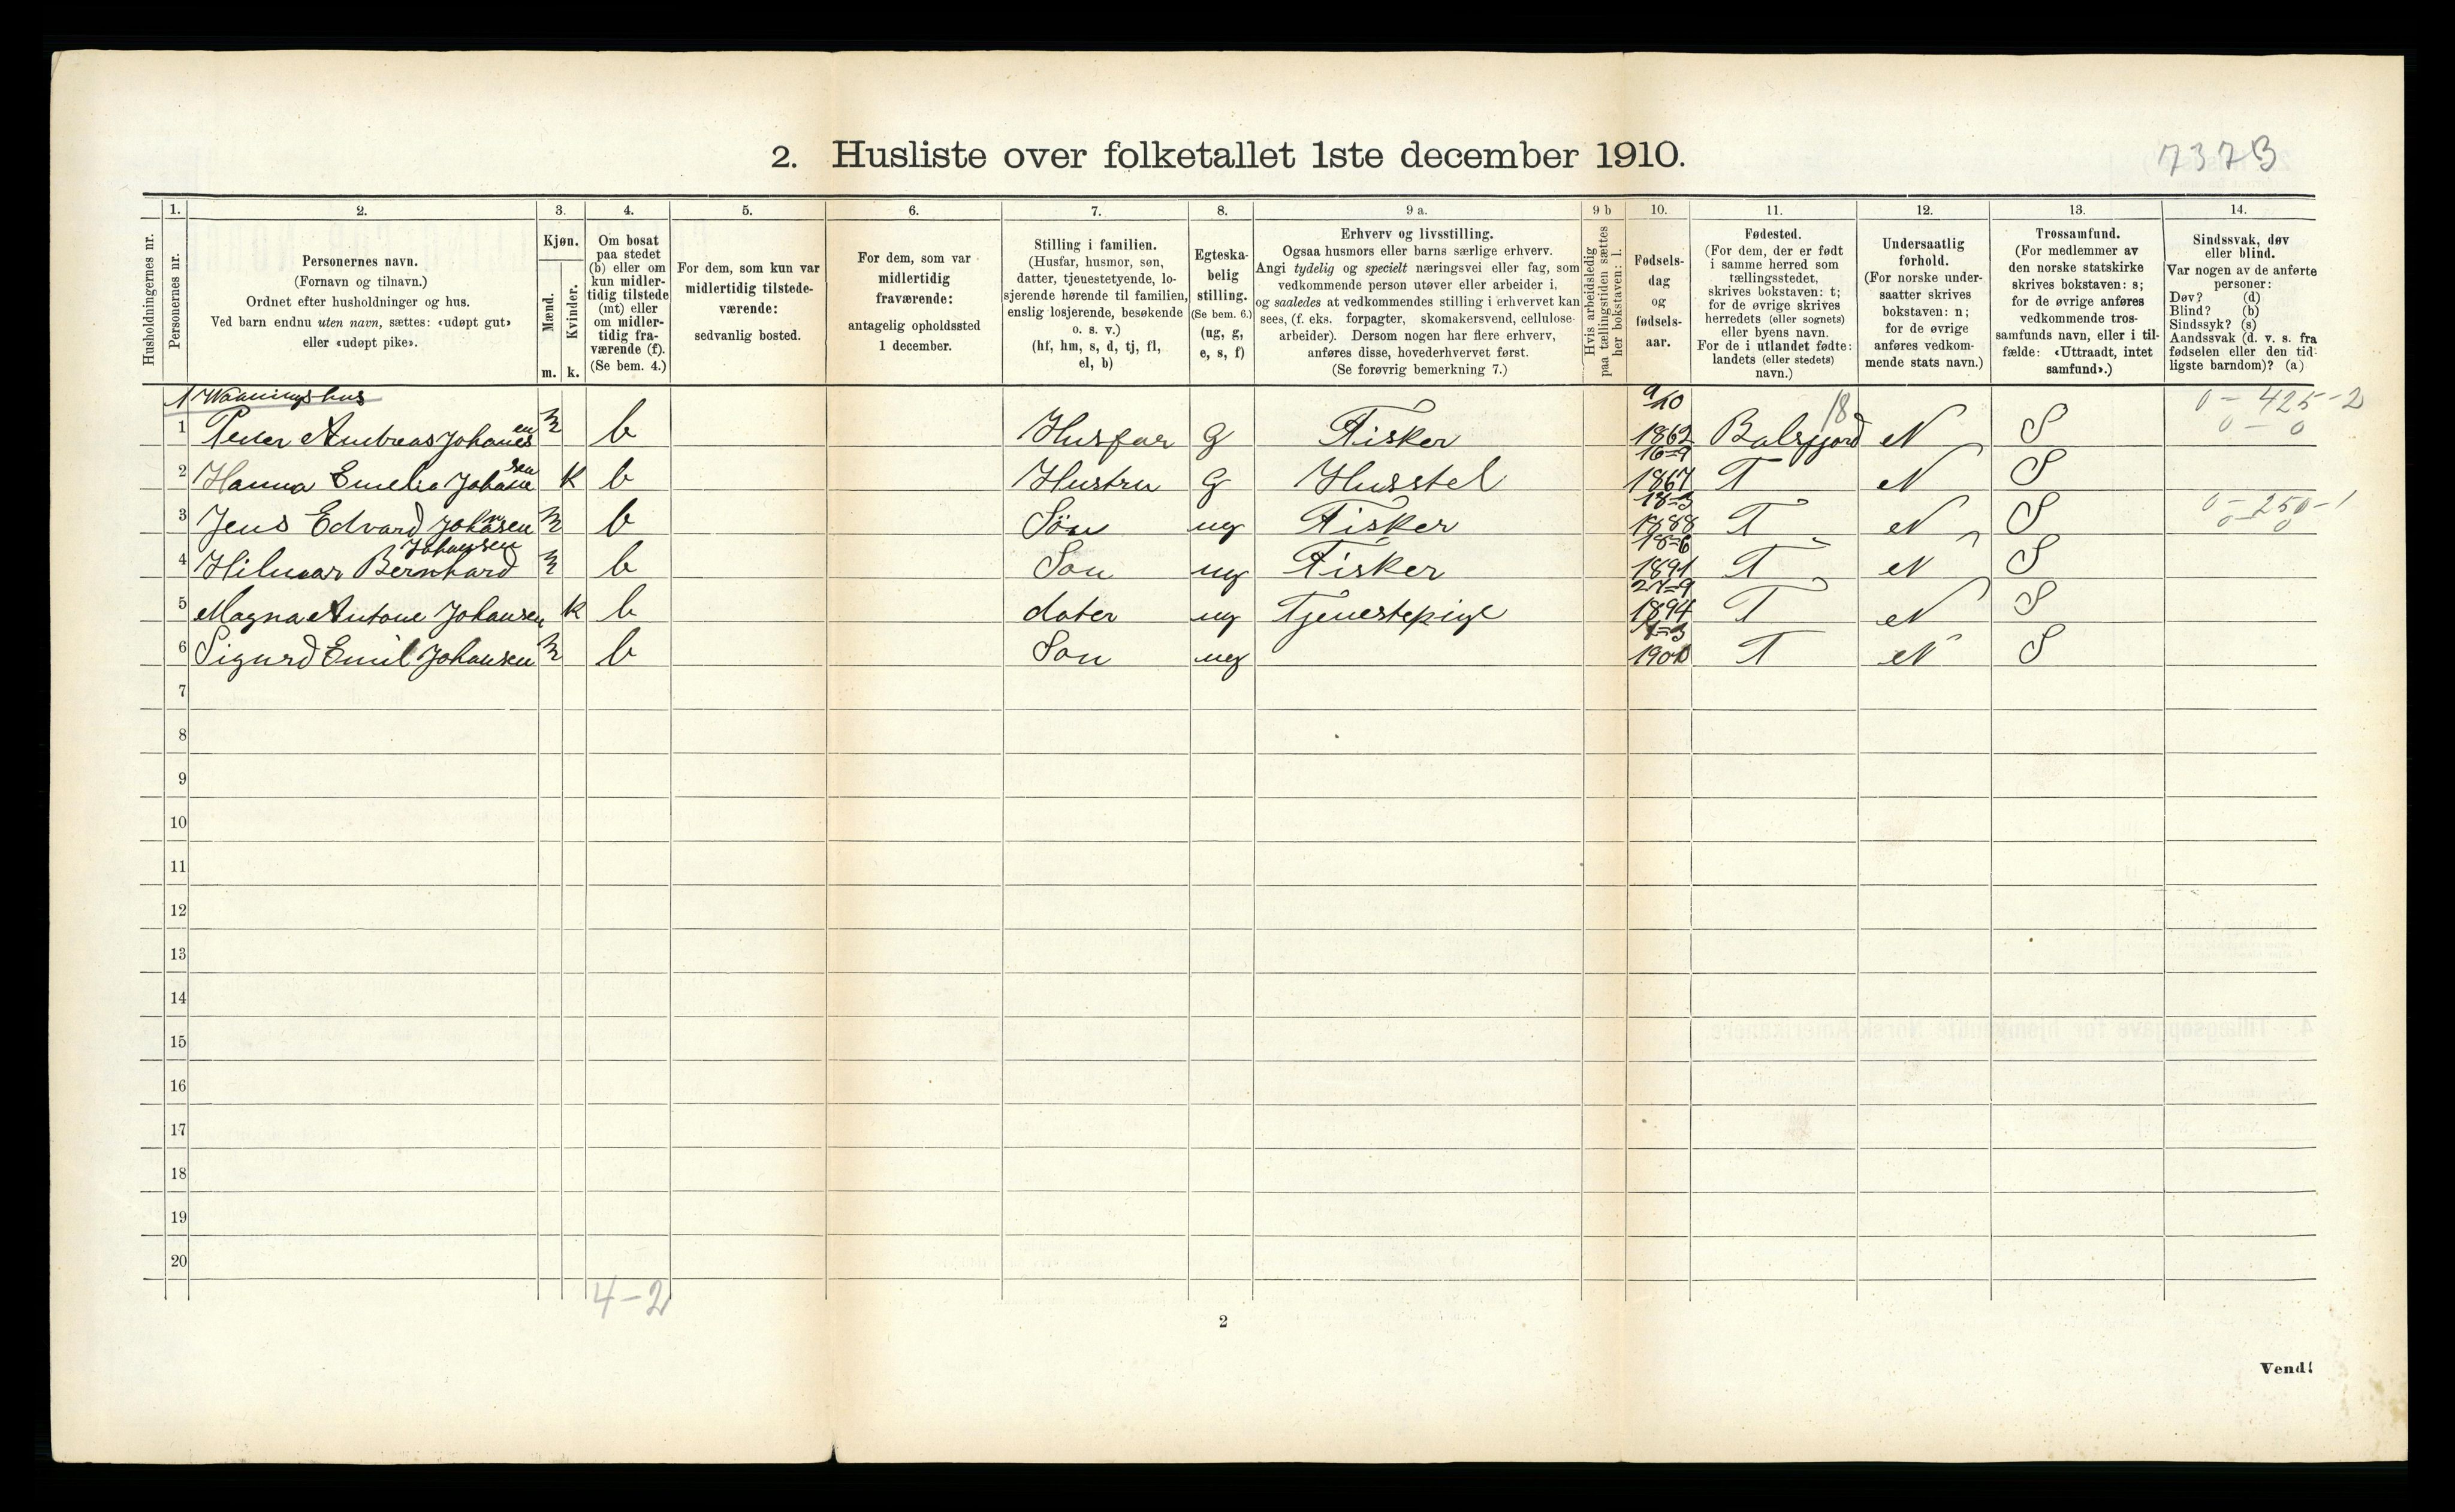 2. Husliste over folketallet 1ste december 1910.
7373
1. 2. 3. 4. 5. 6. 7. 8. 9 a. 9 b 10. 11. 12. 13. 14.
Husholdningernes nr.
Personernes nr.
Personernes navn.
(Fornavn og tilnavn.)
Ordnet efter husholdninger og hus.
Ved barn endnu uten navn, sættes: «udøpt gut»
eller «udøpt pike».
Kjøn.
Mænd.
Kvinder.
m. k.
Om bosat
paa stedet
(b) eller om
kun midler-
tidig tilstede
(mt) eller
om midler-
tidig fra-
værende (f).
(Se bem. 4.)
For dem, som kun var
midlertidig tilstede-
værende:
sedvanlig bosted.
For dem, som var
midlertidig
fraværende:
antagelig opholdssted
1 december.
Stilling i familien.
(Husfar, husmor, søn,
datter, tjenestetyende, lo-
sjerende hørende til familien,
enslig losjerende, besøkende
o. s. v.)
(hf, hm, s, d, tj, fl,
el, b)
Egteska-
belig
stilling.
(Se bem. 6.)
(ug, g,
e, s, f)
Erhverv og livsstilling.
Ogsaa husmors eller barns særlige erhverv.
Angi tydelig og specielt næringsvei eller fag, som
vedkommende person utøver eller arbeider i,
og saaledes at vedkommendes stilling i erhvervet kan
sees, (f. eks. forpagter, skomakersvend, cellulose-
arbeider). Dersom nogen har flere erhverv,
anføres disse, hovederhvervet først.
(Se forøvrig bemerkning 7.)
Hvis arbeidsledig
paa tællingstiden sættes
her bokstaven: l.
Fødsels-
dag
og
fødsels-
aar.
Fødested.
(For dem, der er født
i samme herred som
tællingsstedet,
skrives bokstaven: t;
for de øvrige skrives
herredets (eller sognets)
eller byens navn.
For de i utlandet fødte:
landets (eller stedets)
navn.)
Undersaatlig
forhold.
(For norske under-
saatter skrives
bokstaven: n;
for de øvrige
anføres vedkom-
mende stats navn.)
Trossamfund.
(For medlemmer av
den norske statskirke
skrives bokstaven: s;
for de øvrige anføres
vedkommende tros-
samfunds navn, eller i til-
fælde: «Uttraadt, intet
samfund».)
Sindssvak, døv
eller blind.
Var nogen av de anførte
personer:
Døv? (d)
Blind? (b)
Sindssyk? (s)
Aandssvak (d. v. s. fra
fødselen eller den tid-
ligste barndom)? (a)
1 Waaningshus
1 Peder Andreas Johansen m b Husfar G Fisker 9/10 1862 Balsfjord 18 N S 0 - 425 - 2 0 - 0
2 Hanna Emelie Johansen k b Hustru G Husstel 16-9 1867 T N S
3 Jens Edvard Johansen m b Sön ug Fisker 18-3 1888 T N S 0 - 250 - 1 0 - 0
4 Hilmar Bernhard Johansen m b Son ug Fisker 18-6 1891 T N S
5 Magna Antone Johansen k b dater ug Tjenestepige 27-9 1894 T N S
6 Sigurd Emil Johansen m b Son ug 1-3 1900 T N S
7
8
9
10
11
12
13
14
15
16
17
18
19
20
4-2
2
Vend!